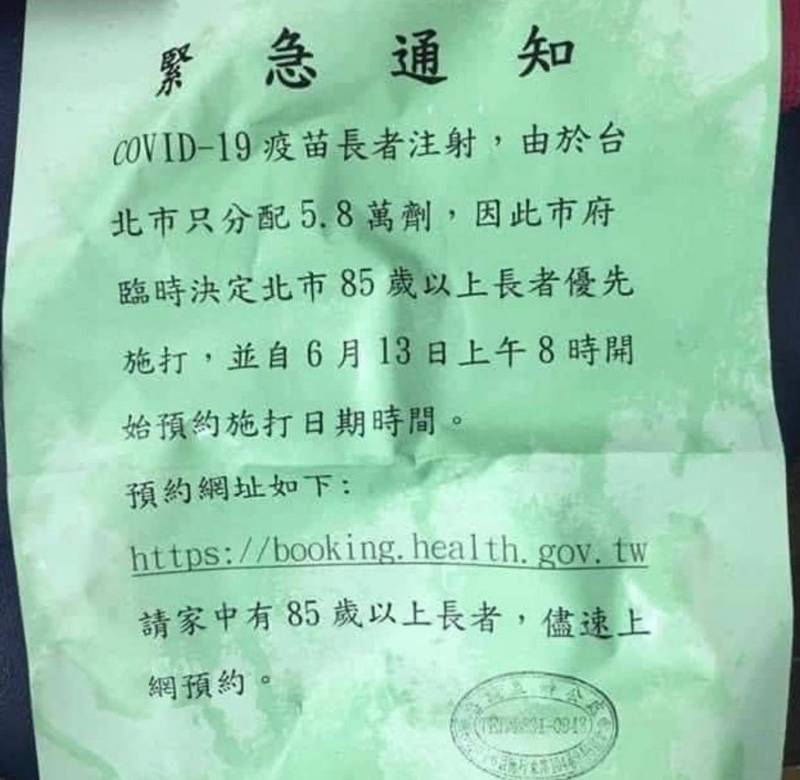 緊急通知
COVID-19 疫苗長者注射，由於台
北市只分配 5.8 萬劑，因此市府
臨時決定北市 85 歲以上長者優先
施打，並自 6 月 13 日上午 8 時開
始預約施打日期時間。
預約網址如下：
https://booking.health.gov.tw
請家中有 85 歲以上長者，儘速上
網預約。
辦公處